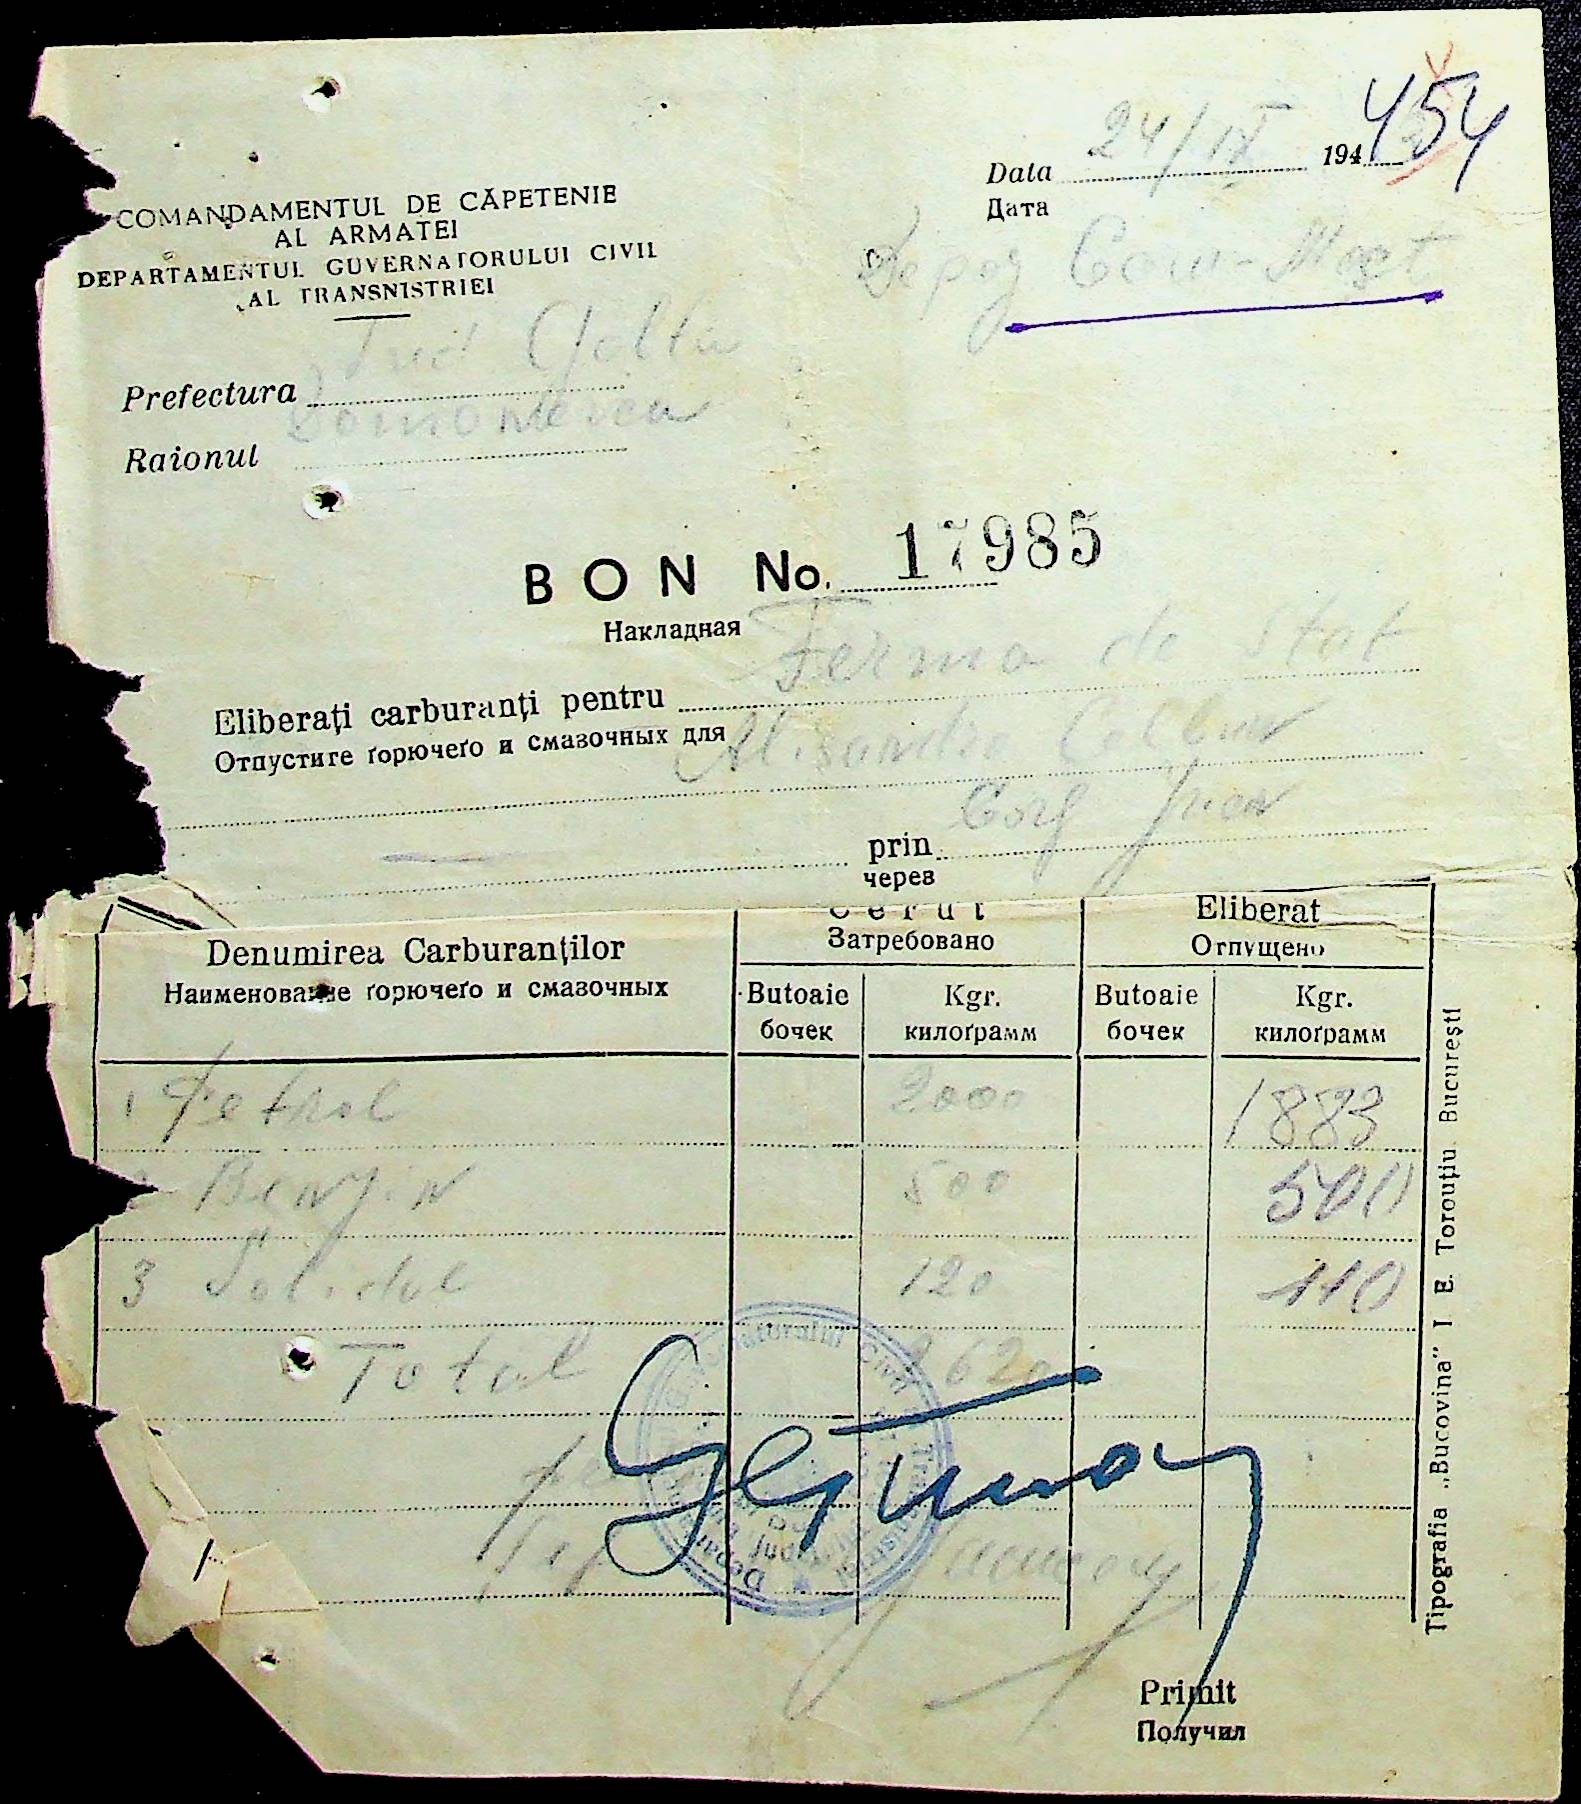 454
Data 24/IX 194
Дата
COMANDAMENTUL DE CĂPETENIE
AL ARMATEI
DEPARTAMENTUL GUVERNATORULUI CIVIL
AL TRANSNISTRIEI
Depoz
Jud Golta
Prefectura
Raionul
BON No. 17985
Накладная
Ferma de Stat
Eliberați carburanți pentru
Отпустите горючего и смазочных для
prin
через
Denumirea Carburanților Cerut Eliberat
Наименование горючего и смазочных Затребовано Отпущено
Butoaie Kgr. Butoaie Kgr.
бочек килограмм бочек килограмм
1 Petrol 2000 1883
2 Benzin 500 500
3 Solidol 120 110
Total 2620
Primit
Получил
Tipografia „Bucovina" I E. Torouțiu București